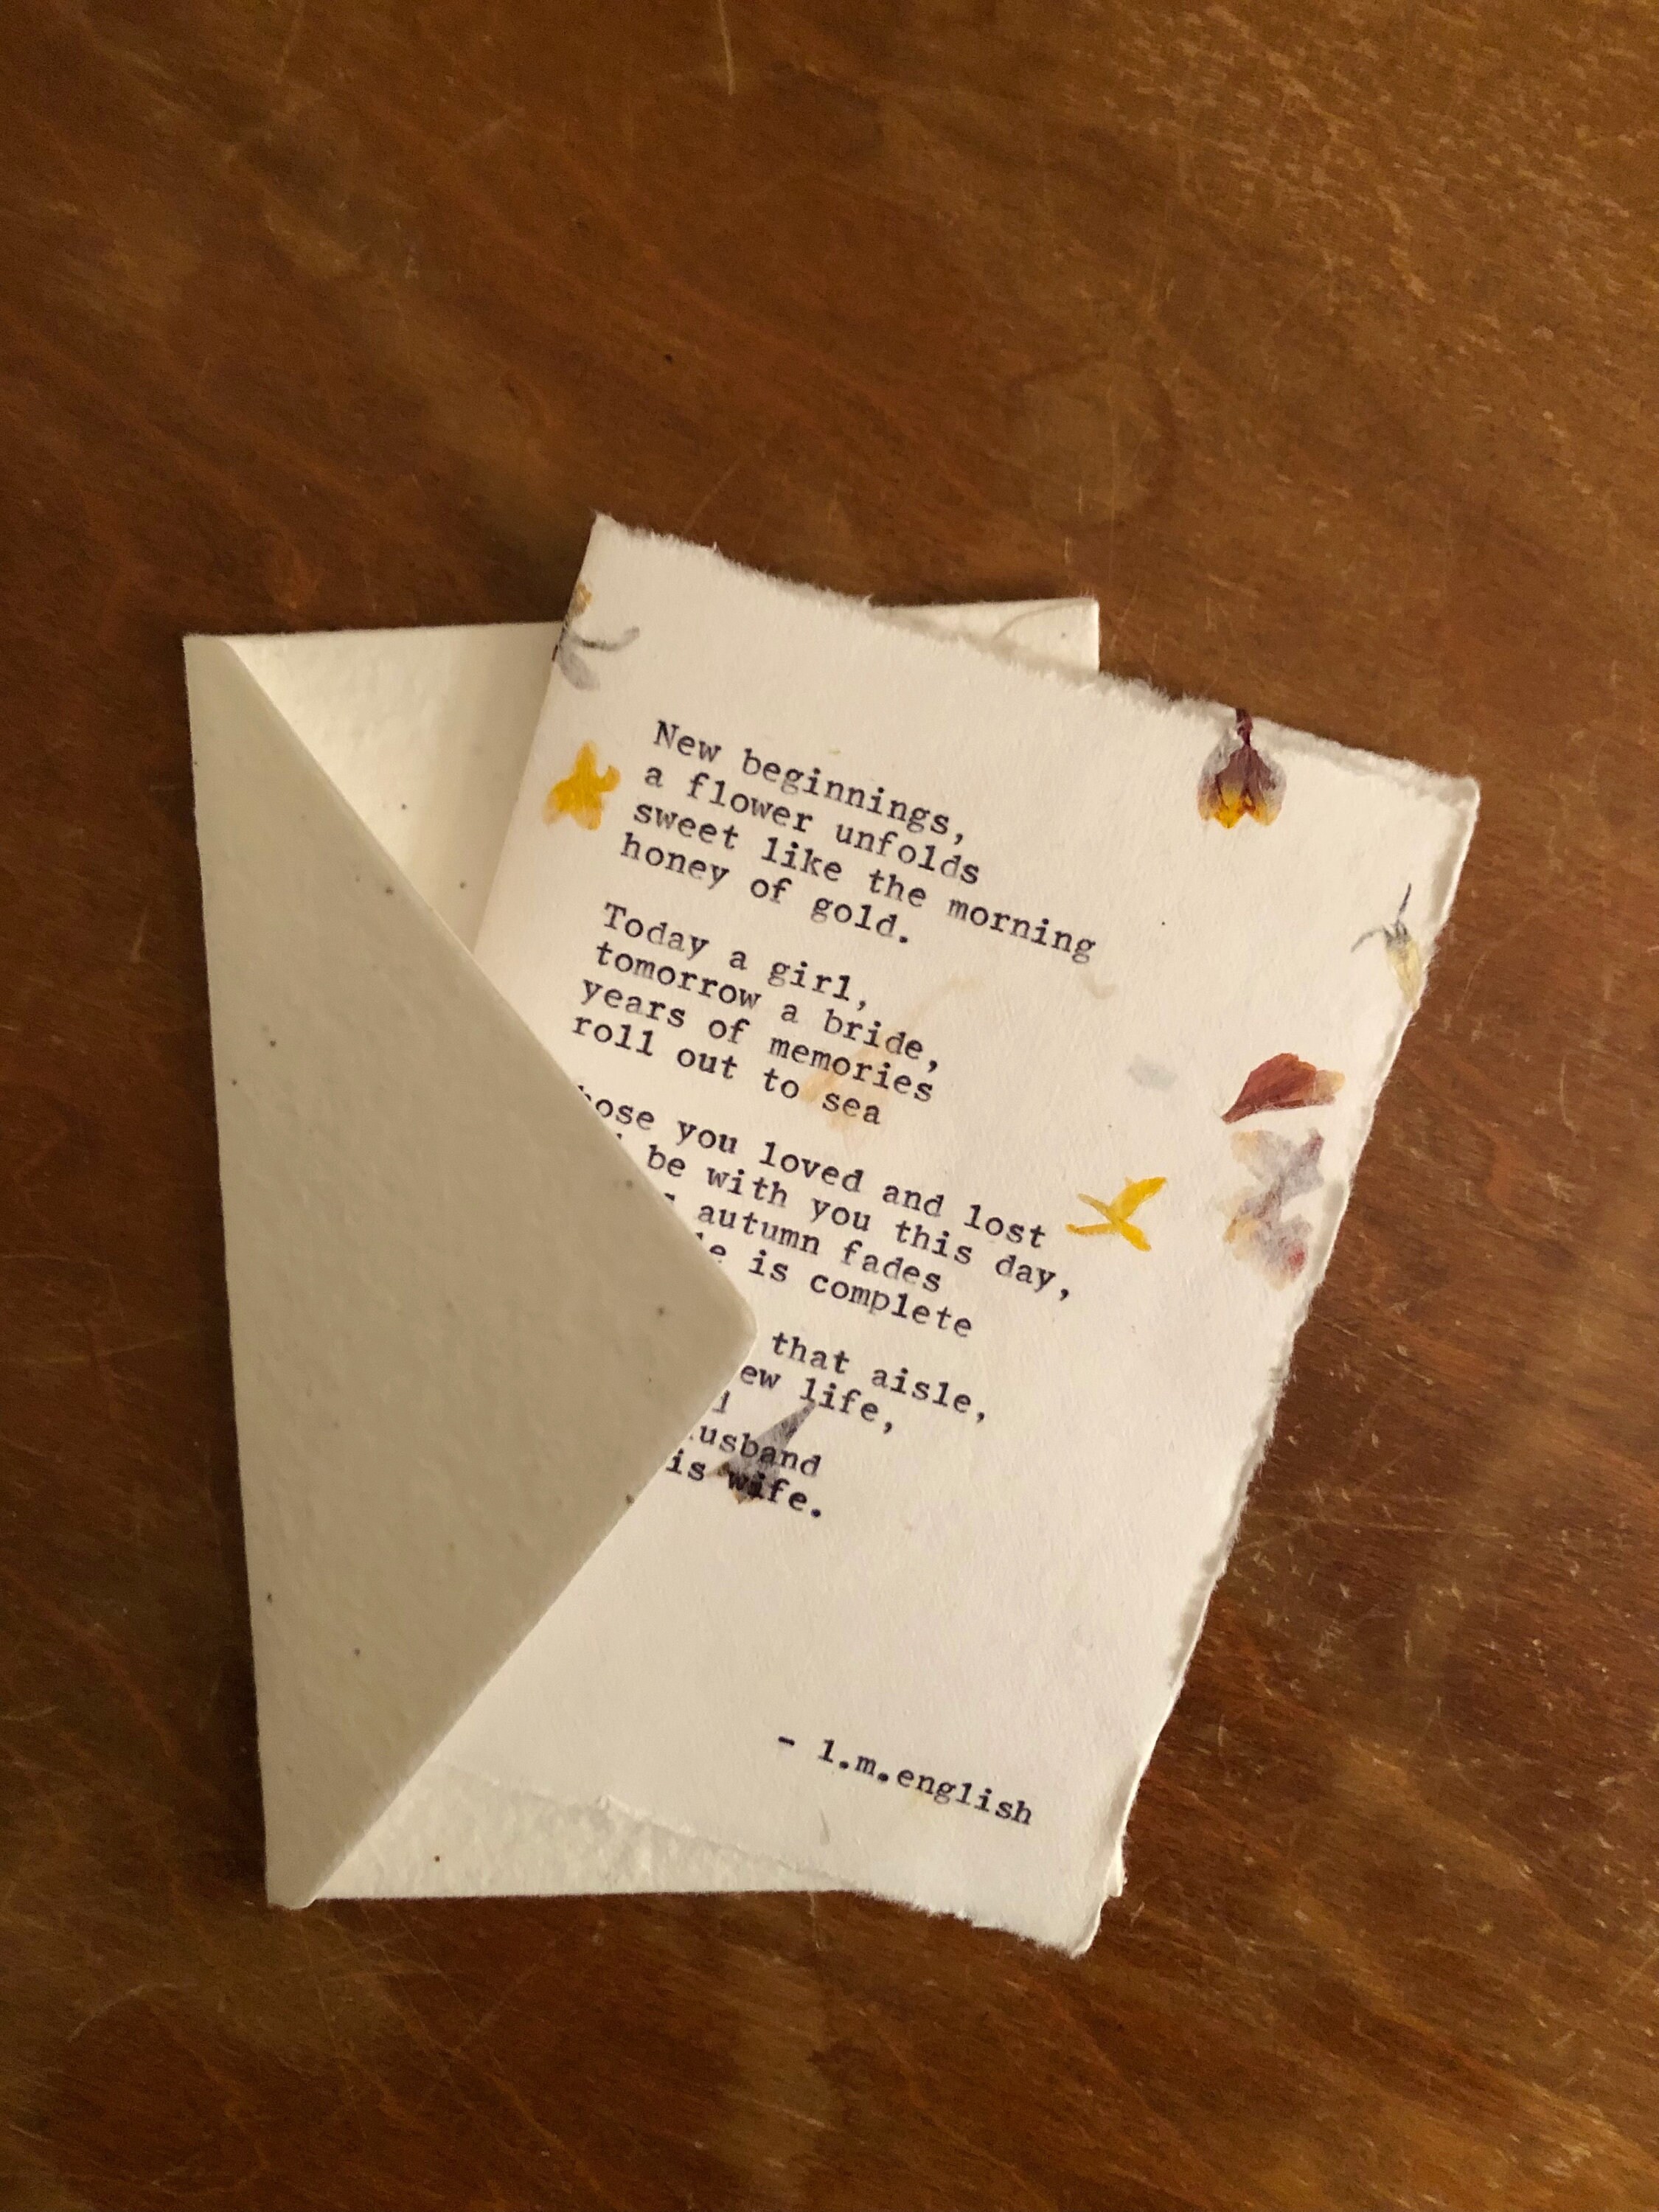 New beginnings,
a flower unfolds
sweet like the morning
honey of gold.
Today a girl,
tomorrow a bride,
years of memories
roll out to sea
you loved and lost
be with you this day,
autumn fades
is complete
that aisle,
life,
is wife.
- l.m.english